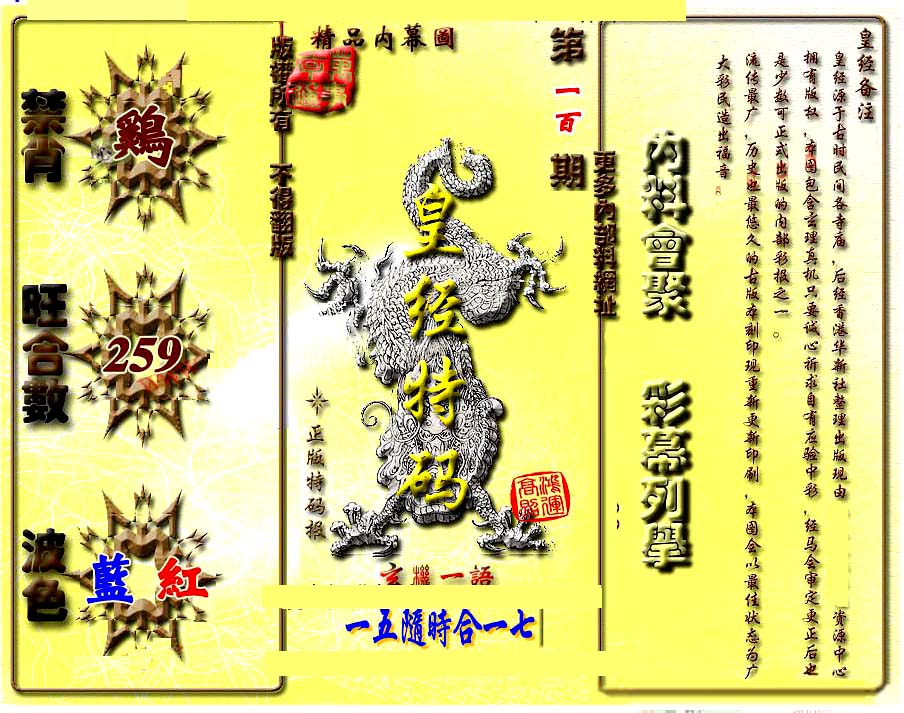 皇经备注
皇经源于古时民间各寺庙，后经香港华新社整理出版现由 资源中心
拥有版权，本图包含玄理真机只要诚心祈求自有应验中彩，经马会审定更正后也
是少数可正式出版的内部彩报之一。
流传最广，历史也最悠久的古版本刻印现重新更新印刷，本图会以最佳状态为广
大彩民造出福音
內料會聚
彩幕列學
更多內部料網址
第一百期
精品内幕圖
版谱所有 不得翻版
皇经特码
正版特码报
鴻運高照
玄機一語
一五隨時合一七
禁肖
鷄
旺合數
259
波色
藍 紅